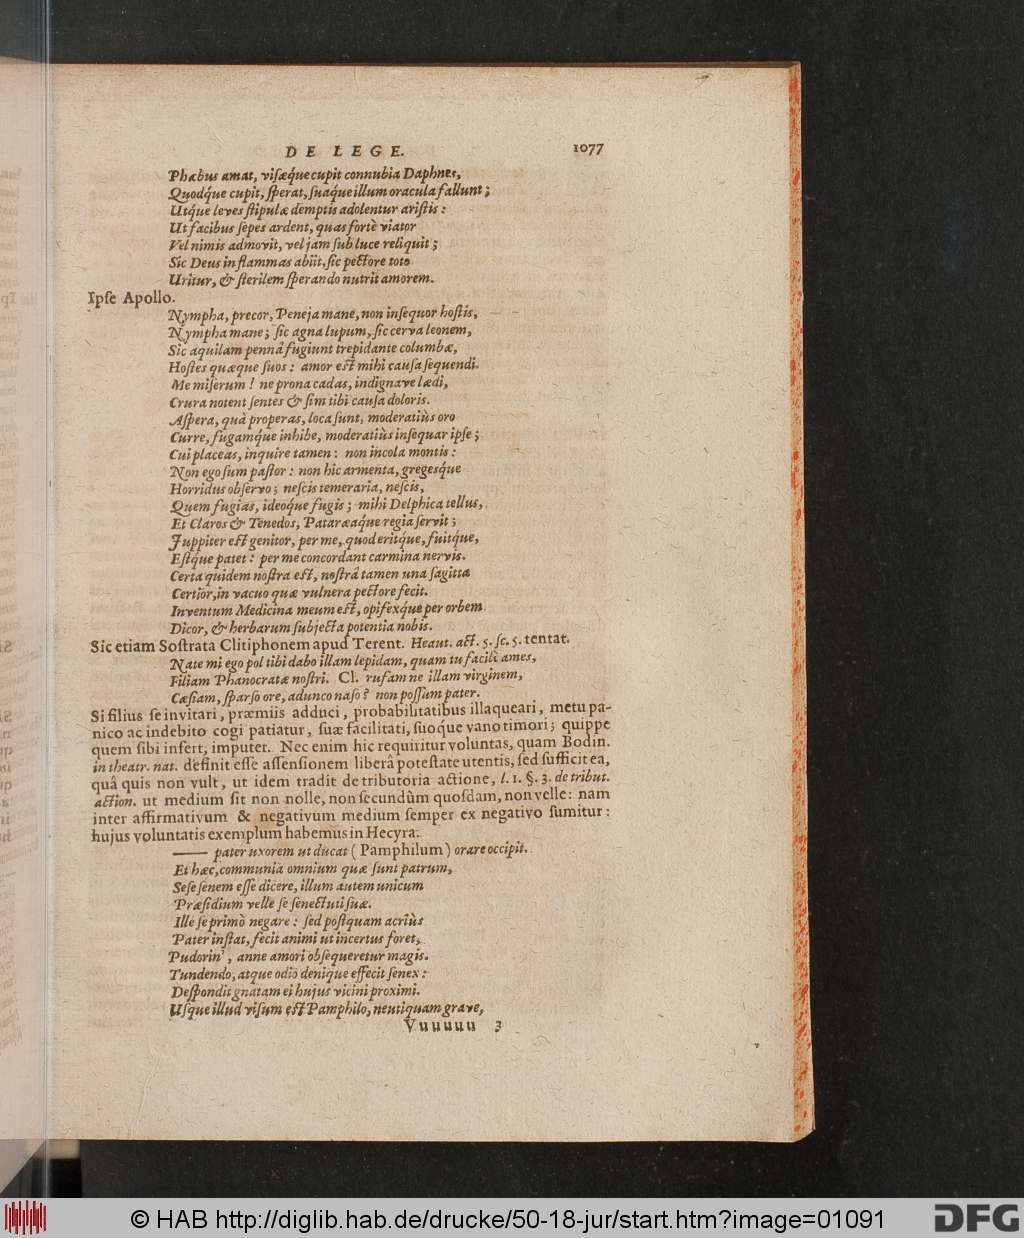 DE LEGE. 1077
Phœbus amat, viſæq́ue cupit connubia Daphnes,
Quodq́ue cupit, ſperat, ſuaq́ue illum oracula fallunt;
Utq́ue leves ſtipulæ demptis adolentur ariſtis:
Ut facibus ſepes ardent, quas fortè viator
Vel nimis admovit, vel jam ſub luce reliquit;
Sic Deus in flammas abiit, ſic pectore toto
Uritur, & ſterilem ſperando nutrit amorem.
Ipſe Apollo.
Nympha, precor, Peneja mane, non inſequor hoſtis,
Nympha mane; ſic agna lupum, ſic cerva leonem,
Sic aquilam pennâ fugiunt trepidante columbæ,
Hoſtes quæque ſuos: amor eſt mihi cauſa ſequendi.
Me miſerum! ne prona cadas, indignave lædi,
Crura notent ſentes & ſim tibi cauſa doloris.
Aſpera, quà properas, loca ſunt, moderatiùs oro
Curre, fugamq́ue inhibe, moderatiùs inſequar ipſe;
Cui placeas, inquire tamen: non incola montis:
Non ego ſum paſtor: non hic armenta, gregesq́ue
Horridus obſervo; neſcis temeraria, neſcis,
Quem fugias, ideoque fugis; mihi Delphica tellus,
Et Claros & Tenedos, Pataræaq́ue regia ſervit;
Juppiter eſt genitor, per me, quod eritq́ue, fuitq́ue,
Eſtq́ue patet: per me concordant carmina nervis.
Certa quidem noſtra eſt, noſtrâ tamen una ſagitta
Certior, in vacuo quæ vulnera pectore fecit.
Inventum Medicina meum eſt, opifexq́ue per orbem
Dicor, & herbarum ſubjecta potentia nobis.
Sic etiam Soſtrata Clitiphonem apud Terent. Heaut. act. 5. ſc. 5. tentat.
Nate mi ego pol tibi dabo illam lepidam, quam tu facilè ames,
Filiam Phanocratæ noſtri. Cl. rufam ne illam virginem,
Cæſiam, ſparſo ore, adunco naſo? non poſſum pater.
Si filius ſe invitari, præmiis adduci, probabilitatibus illaqueari, metu pa-
nico ac indebito cogi patiatur, ſuæ facilitati, ſuoque vano timori; quippe
quem ſibi infert, imputet. Nec enim hic requiritur voluntas, quam Bodin.
in theatr. nat. definit eſſe aſſenſionem liberâ poteſtate utentis, ſed ſufficit ea,
quâ quis non vult, ut idem tradit de tributoria actione, l. 1. §. 3. de tribut.
action. ut medium ſit non nolle, non ſecundùm quoſdam, non velle: nam
inter affirmativum & negativum medium ſemper ex negativo ſumitur:
hujus voluntatis exemplum habemus in Hecyra.
—— pater uxorem ut ducat (Pamphilum) orare occipit.
Et hæc, communia omnium quæ ſunt patrum,
Seſe ſenem eſſe dicere, illum autem unicum
Præſidium velle ſe ſenectuti ſuæ.
Ille ſe primò negare: ſed poſtquam acriùs
Pater inſtat, fecit animi ut incertus foret,
Pudorin', anne amori obſequeretur magis.
Tundendo, atque odio denique effecit ſenex:
Deſpondit gnatam ei hujus vicini proximi.
Uſque illud viſum eſt Pamphilo, neutiquam grave,
Vuuuuu 3
© HAB http://diglib.hab.de/drucke/50-18-jur/start.htm?image=01091
DFG